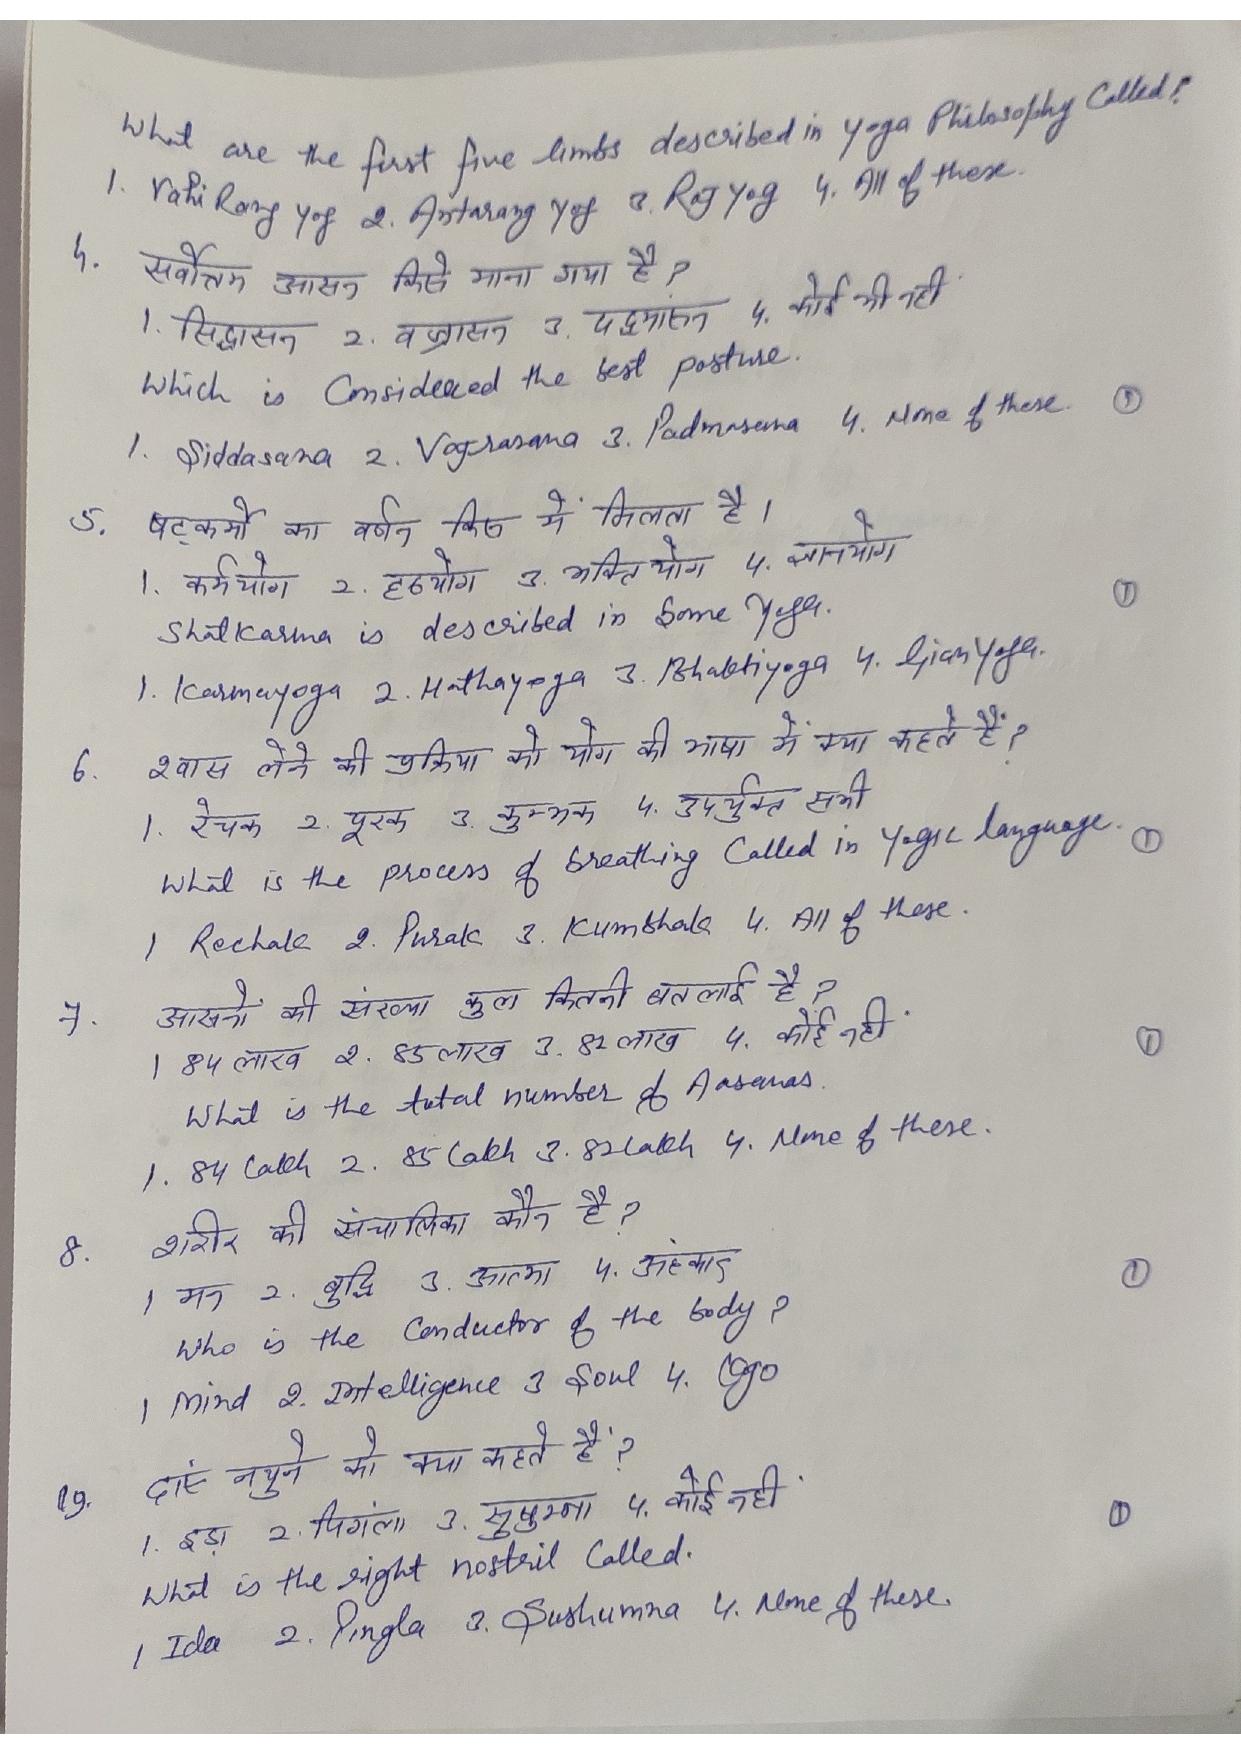 What are the first five limbs described in yoga Philosophy Called?
1. Vahi Rang yog 2. Antarang yog 3. Raj yog 4. All of these.
4. सर्वोत्तम आसन किसे माना गया है ?
1. सिद्धासन 2. वज्रासन 3. पद्मासन 4. कोई भी नही
Which is Considered the best posture.
1. Siddasana 2. Vagrasana 3. Padmasana 4. None of these. ①
5. षट्कर्मो का वर्णन किस में मिलता है ।
1. कर्मयोग 2. हठयोग 3. भक्ति योग 4. ज्ञानयोग
Shatkarma is described in Some Yoga. ①
1. Karmayoga 2. Hathayoga 3. Bhaktiyoga 4. Gianyoga.
6. श्वास लेने की प्रक्रिया को योग की भाषा में क्या कहते हैं ?
1. रेचक 2. पूरक 3. कुम्भक 4. उपर्युक्त सभी
What is the process of breathing Called in Yogic language. ①
1 Rechak 2. Purak 3. Kumbhak 4. All of these.
7. आसनों की संख्या कुल कितनी बतलाई है ?
1 84 लाख 2. 85 लाख 3. 82 लाख 4. कोई नही
What is the total number of Aasanas. ①
1. 84 Lakh 2. 85 Lakh 3. 82 Lakh 4. None of these.
8. शरीर की संचालिका कौन है ?
1 मन 2. बुद्धि 3. आत्मा 4. अंहकार
Who is the Conductor of the body ? ①
1 Mind 2. Intelligence 3 Soul 4. Ego
19. दाएं नथुने को क्या कहते हैं ?
1. इड़ा 2. पिगंला 3. सुषुम्ना 4. कोई नही
What is the right nostril Called. ①
1 Ida 2. Pingla 3. Sushumna 4. None of these.